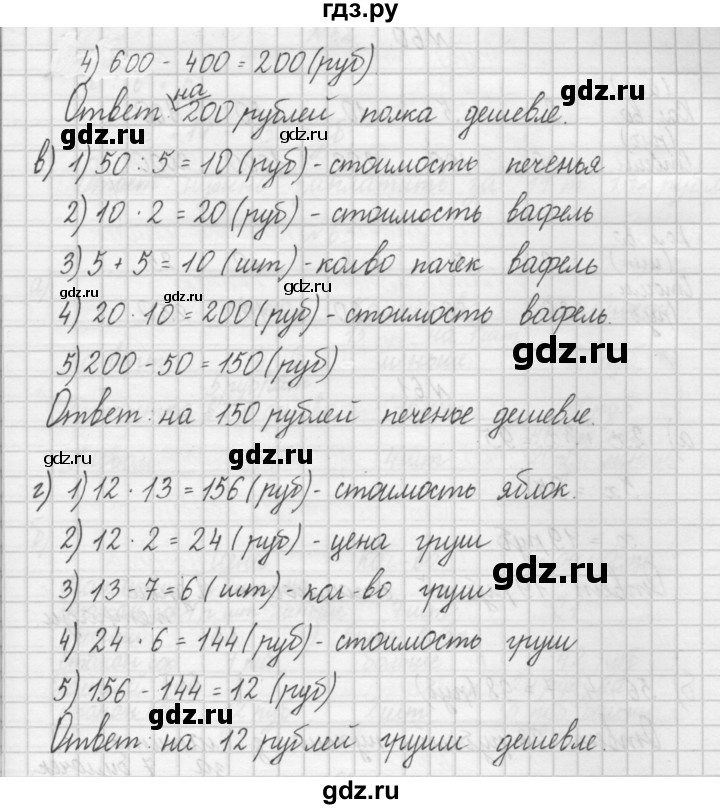 гдз.ру
4) 600 - 400 = 200 (руб)
Ответ: на 200 рублей полка дешевле.
gdz.ru
gdz.ru
в) 1) 50 : 5 = 10 (руб) - стоимость печенья
2) 10 · 2 = 20 (руб) - стоимость вафель
3) 5 + 5 = 10 (шт) - кол.во пачек вафель
gdz.ru gdz.ru gdz.ru
4) 20 · 10 = 200 (руб) - стоимость вафель.
5) 200 - 50 = 150 (руб)
gdz.ru
Ответ: на 150 рублей печенье дешевле.
gdz.ru gdz.ru
г) 1) 12 · 13 = 156 (руб) - стоимость яблок.
2) 12 · 2 = 24 (руб) - цена груш
gdz.ru
3) 13 - 7 = 6 (шт) - кол-во груш
4) 24 · 6 = 144 (руб) - стоимость груш
5) 156 - 144 = 12 (руб)
gdz.ru
Ответ: на 12 рублей груши дешевле.
gdz.ru